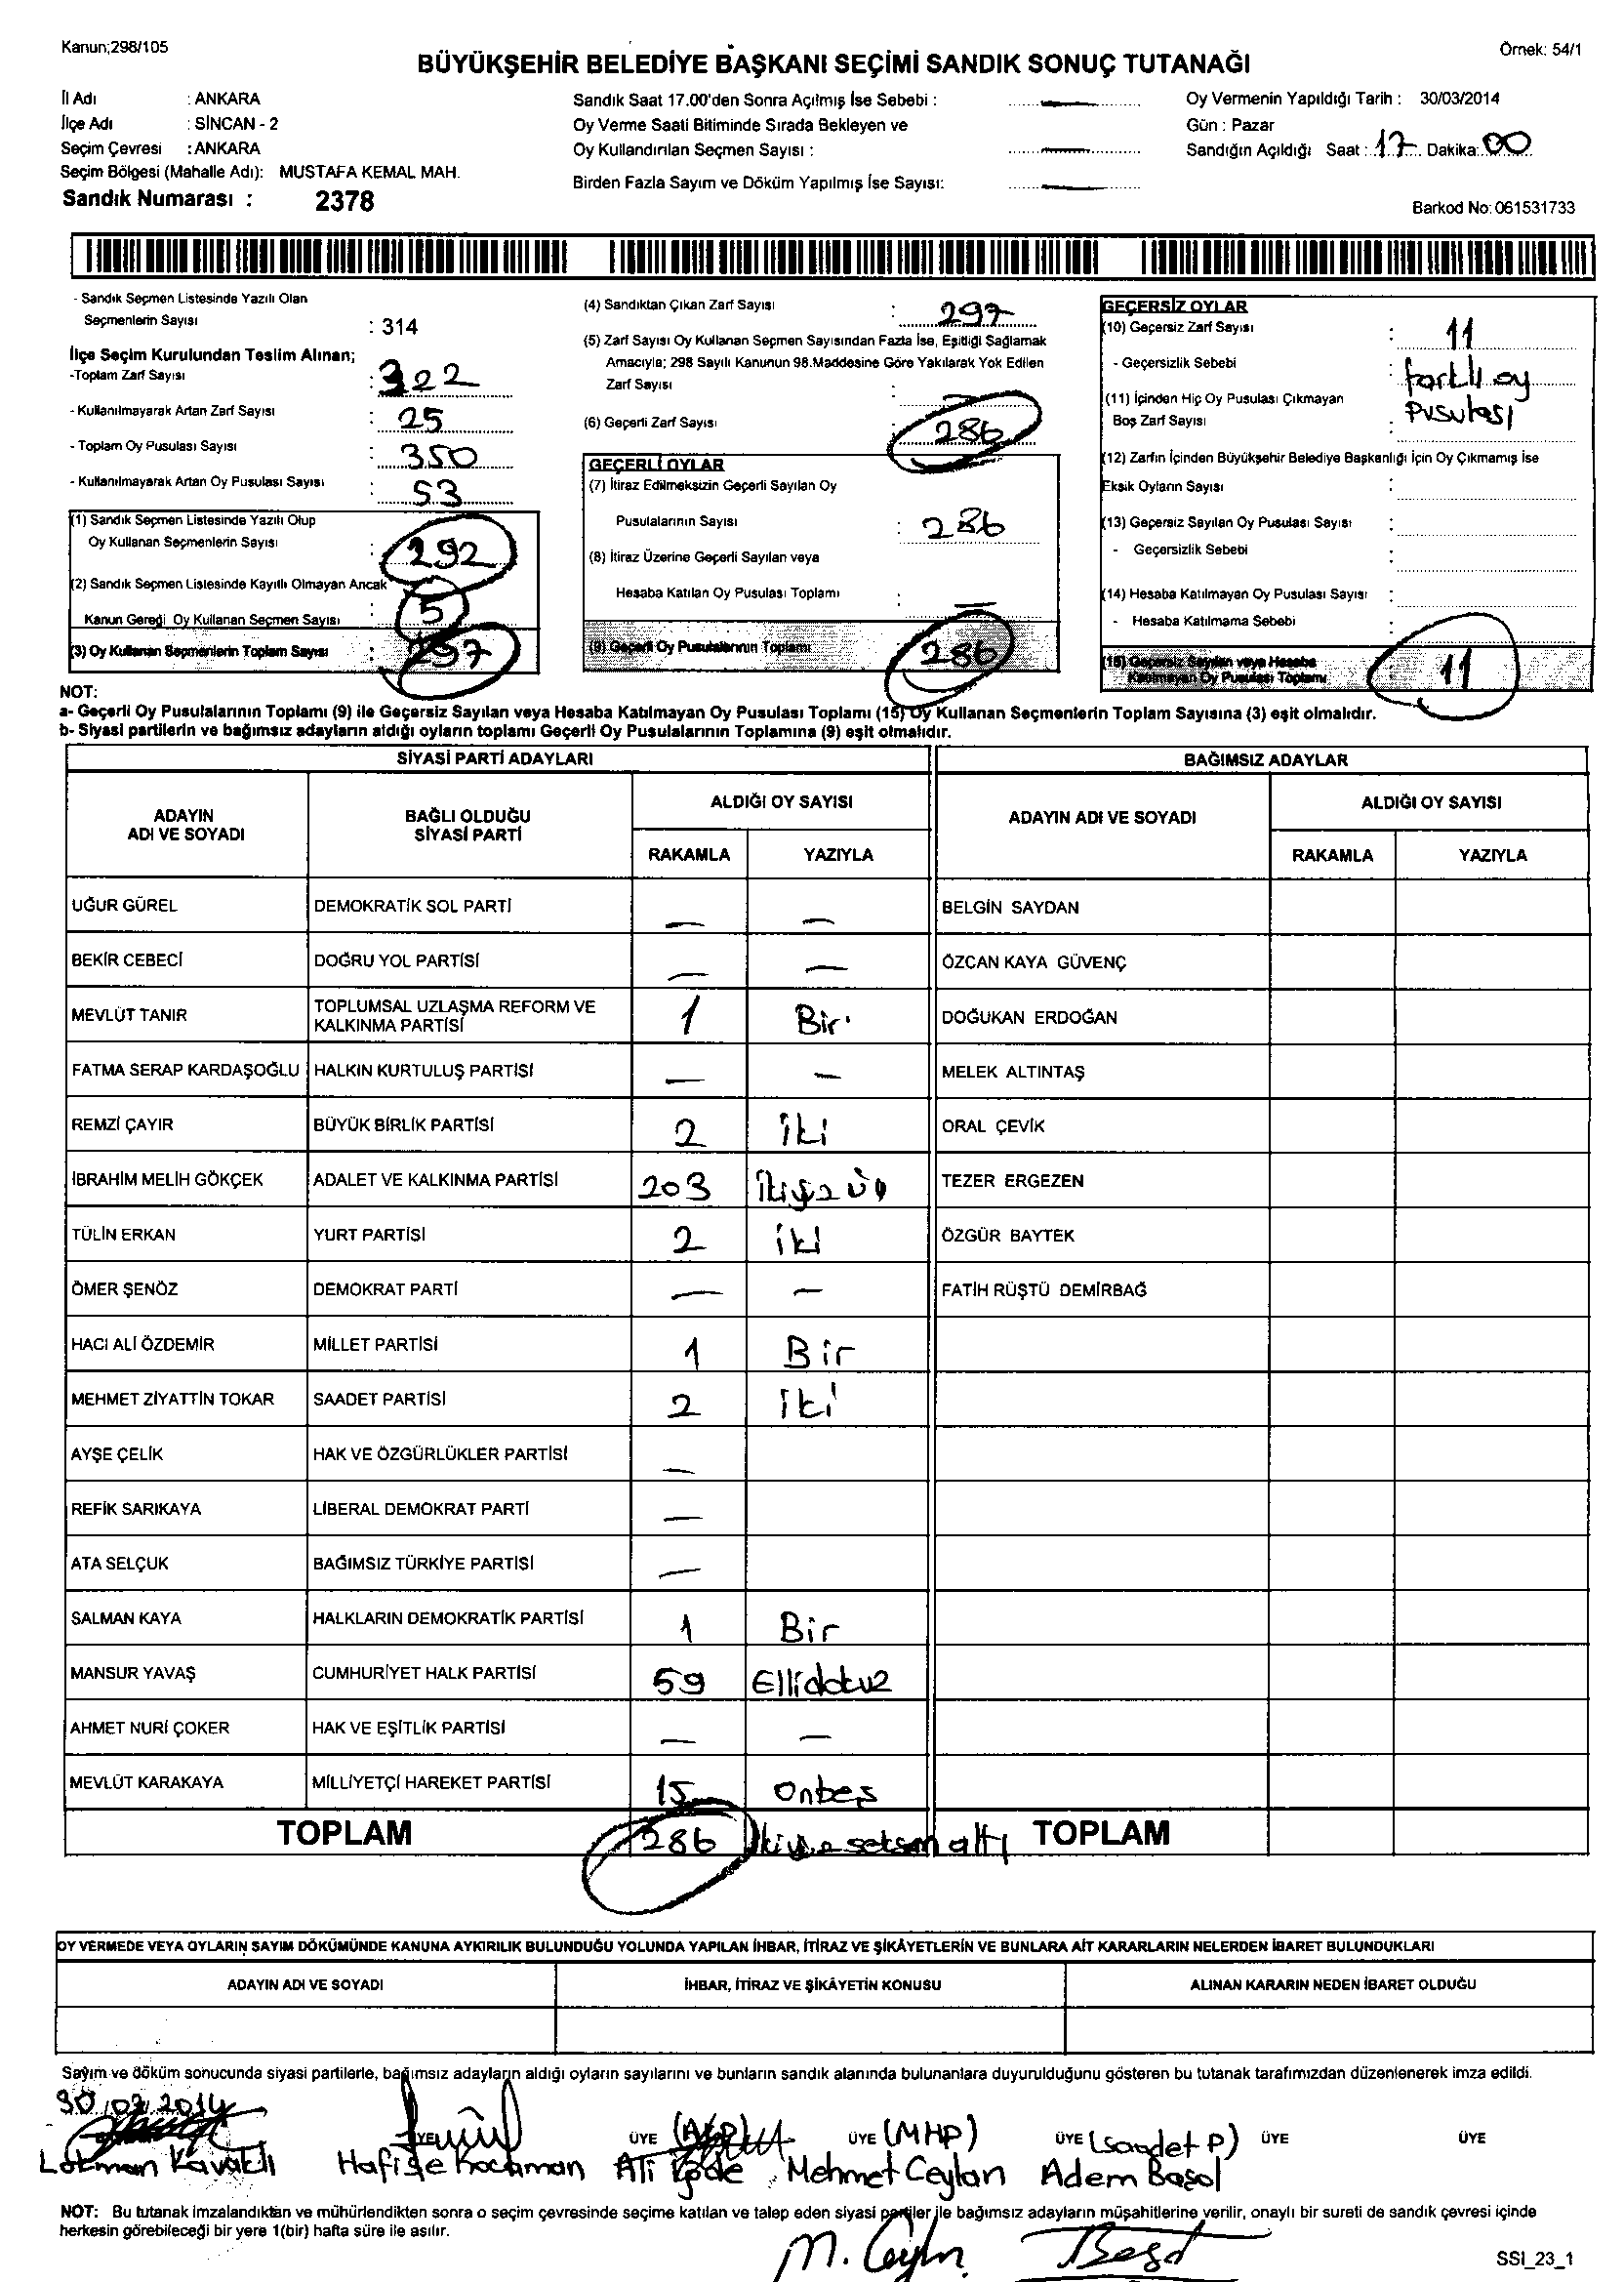 Kanun;298/105
Örnek: 54/1
BÜYÜKŞEHİR BELEDİYE BAŞKANI SEÇİMİ SANDIK SONUÇ TUTANAĞI
İl Adı : ANKARA
İlçe Adı : SİNCAN - 2
Seçim Çevresi : ANKARA
Seçim Bölgesi (Mahalle Adı): MUSTAFA KEMAL MAH.
Sandık Numarası : 2378
Sandık Saat 17.00'den Sonra Açılmış İse Sebebi :
Oy Verme Saati Bitiminde Sırada Bekleyen ve
Oy Kullandırılan Seçmen Sayısı :
Birden Fazla Sayım ve Döküm Yapılmış İse Sayısı:
Oy Vermenin Yapıldığı Tarih : 30/03/2014
Gün : Pazar
Sandığın Açıldığı Saat : 17 Dakika: 00
Barkod No: 061531733
- Sandık Seçmen Listesinde Yazılı Olan
Seçmenlerin Sayısı : 314
İlçe Seçim Kurulundan Teslim Alınan;
-Toplam Zarf Sayısı : 322
- Kullanılmayarak Artan Zarf Sayısı : 25
- Toplam Oy Pusulası Sayısı : 350
- Kullanılmayarak Artan Oy Pusulası Sayısı : 53
(1) Sandık Seçmen Listesinde Yazılı Olup
Oy Kullanan Seçmenlerin Sayısı : 292
(2) Sandık Seçmen Listesinde Kayıtlı Olmayan Ancak
Kanun Gereği Oy Kullanan Seçmen Sayısı : 5
(3) Oy Kullanan Seçmenlerin Toplam Sayısı : 297
(4) Sandıktan Çıkan Zarf Sayısı : 297
(5) Zarf Sayısı Oy Kullanan Seçmen Sayısından Fazla İse, Eşitliği Sağlamak
Amacıyla; 298 Sayılı Kanunun 98.Maddesine Göre Yakılarak Yok Edilen
Zarf Sayısı :
(6) Geçerli Zarf Sayısı : 286
GEÇERLİ OYLAR
(7) İtiraz Edilmeksizin Geçerli Sayılan Oy
Pusulalarının Sayısı : 286
(8) İtiraz Üzerine Geçerli Sayılan veya
Hesaba Katılan Oy Pusulası Toplamı : —
(9) Geçerli Oy Pusulalarının Toplamı : 286
GEÇERSİZ OYLAR
(10) Geçersiz Zarf Sayısı : 11
- Geçersizlik Sebebi : farklı oy
pusulası
(11) İçinden Hiç Oy Pusulası Çıkmayan
Boş Zarf Sayısı :
(12) Zarfın İçinden Büyükşehir Belediye Başkanlığı İçin Oy Çıkmamış İse
Eksik Oyların Sayısı :
(13) Geçersiz Sayılan Oy Pusulası Sayısı :
- Geçersizlik Sebebi :
(14) Hesaba Katılmayan Oy Pusulası Sayısı :
- Hesaba Katılmama Sebebi :
(15) Geçersiz Sayılan veya Hesaba
Katılmayan Oy Pusulası Toplamı : 11
NOT:
a- Geçerli Oy Pusulalarının Toplamı (9) ile Geçersiz Sayılan veya Hesaba Katılmayan Oy Pusulası Toplamı (15) Oy Kullanan Seçmenlerin Toplam Sayısına (3) eşit olmalıdır.
b- Siyasi partilerin ve bağımsız adayların aldığı oyların toplamı Geçerli Oy Pusulalarının Toplamına (9) eşit olmalıdır.
SİYASİ PARTİ ADAYLARI
ADAYIN
ADI VE SOYADI
BAĞLI OLDUĞU
SİYASİ PARTİ
ALDIĞI OY SAYISI
RAKAMLA YAZIYLA
UĞUR GÜREL DEMOKRATİK SOL PARTİ — —
BEKİR CEBECİ DOĞRU YOL PARTİSİ — —
MEVLÜT TANIR TOPLUMSAL UZLAŞMA REFORM VE
KALKINMA PARTİSİ 1 Bir
FATMA SERAP KARDAŞOĞLU HALKIN KURTULUŞ PARTİSİ — —
REMZİ ÇAYIR BÜYÜK BİRLİK PARTİSİ 2 iki
İBRAHİM MELİH GÖKÇEK ADALET VE KALKINMA PARTİSİ 203 ikiyüz üç
TÜLİN ERKAN YURT PARTİSİ 2 iki
ÖMER ŞENÖZ DEMOKRAT PARTİ — —
HACI ALİ ÖZDEMİR MİLLET PARTİSİ 1 Bir
MEHMET ZİYATTİN TOKAR SAADET PARTİSİ 2 iki
AYŞE ÇELİK HAK VE ÖZGÜRLÜKLER PARTİSİ —
REFİK SARIKAYA LİBERAL DEMOKRAT PARTİ —
ATA SELÇUK BAĞIMSIZ TÜRKİYE PARTİSİ —
SALMAN KAYA HALKLARIN DEMOKRATİK PARTİSİ 1 Bir
MANSUR YAVAŞ CUMHURİYET HALK PARTİSİ 59 Ellidokuz
AHMET NURİ ÇOKER HAK VE EŞİTLİK PARTİSİ — —
MEVLÜT KARAKAYA MİLLİYETÇİ HAREKET PARTİSİ 15 onbeş
TOPLAM 286 seksen altı
BAĞIMSIZ ADAYLAR
ADAYIN ADI VE SOYADI
ALDIĞI OY SAYISI
RAKAMLA YAZIYLA
BELGİN SAYDAN
ÖZCAN KAYA GÜVENÇ
DOĞUKAN ERDOĞAN
MELEK ALTINTAŞ
ORAL ÇEVİK
TEZER ERGEZEN
ÖZGÜR BAYTEK
FATİH RÜŞTÜ DEMİRBAĞ
TOPLAM
OY VERMEDE VEYA OYLARIN SAYIM DÖKÜMÜNDE KANUNA AYKIRILIK BULUNDUĞU YOLUNDA YAPILAN İHBAR, İTİRAZ VE ŞİKÂYETLERİN VE BUNLARA AİT KARARLARIN NELERDEN İBARET BULUNDUKLARI
ADAYIN ADI VE SOYADI İHBAR, İTİRAZ VE ŞİKÂYETİN KONUSU ALINAN KARARIN NEDEN İBARET OLDUĞU
Sayım ve döküm sonucunda siyasi partilerle, bağımsız adayların aldığı oyların sayılarını ve bunların sandık alanında bulunanlara duyurulduğunu gösteren bu tutanak tarafımızdan düzenlenerek imza edildi.
30.03.2014
ÜYE ÜYE (AKP) ÜYE (MHP) ÜYE (Saadet P) ÜYE ÜYE
Lokman Kavaklı Hafise Kocaman Ali Mehmet Ceylan Adem Başol
NOT: Bu tutanak imzalandıktan ve mühürlendikten sonra o seçim çevresinde seçime katılan ve talep eden siyasi partiler ile bağımsız adayların müşahitlerine verilir, onaylı bir sureti de sandık çevresi içinde
herkesin görebileceği bir yere 1(bir) hafta süre ile asılır.
M. Ceylan
SSI_23_1